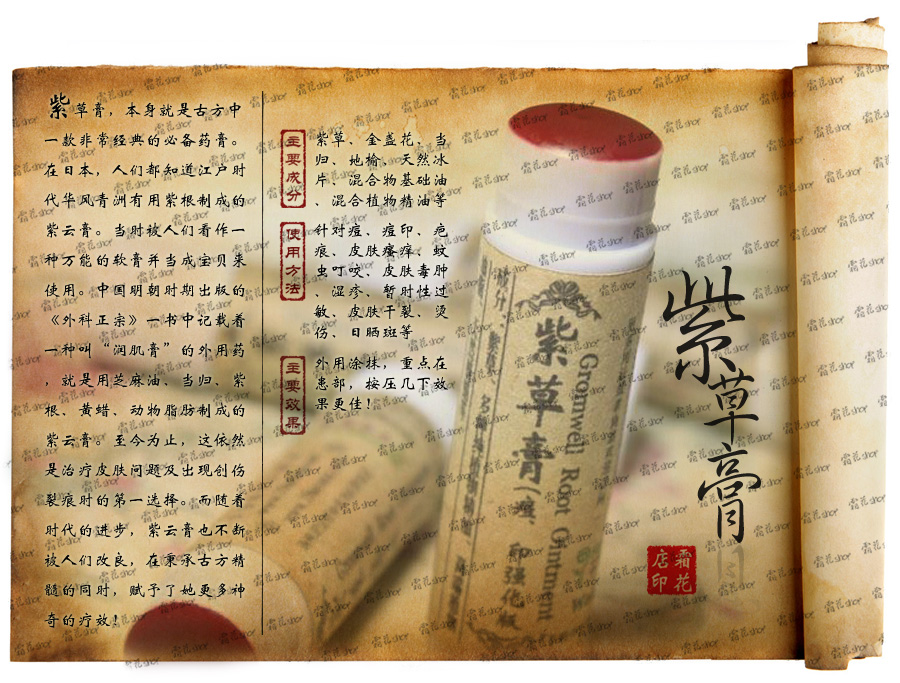 紫草膏，本身就是古方中
一款非常经典的必备药膏。
在日本，人们都知道江户时
代华风青洲有用紫根制成的
紫云膏。当时被人们看作一
种万能的软膏并当成宝贝来
使用。中国明朝时期出版的
《外科正宗》一书中记载着
一种叫“润肌膏”的外用药
，就是用芝麻油、当归、紫
根、黄蜡、动物脂肪制成的
紫云膏。至今为止，这依然
是治疗皮肤问题及出现创伤
裂痕时的第一选择。而随着
时代的进步，紫云膏也不断
被人们改良，在秉承古方精
髓的同时，赋予了她更多神
奇的疗效！
主要成分
紫草、金盏花、当
归、地榆、天然冰
片、混合物基础油
、混合植物精油等
使用方法
针对痘、痘印、疤
痕、皮肤瘙痒、蚊
虫叮咬、皮肤毒肿
、湿疹、暂时性过
敏、皮肤干裂、烫
伤、日晒斑等
主要效果
外用涂抹，重点在
患部，按压几下效
果更佳！
紫草膏
Gromwell Root Ointment
紫草膏
霜花
店印
霜花shop